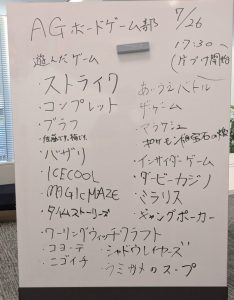 AGボードゲーム部
7/26
17:30〜
(片づけ開始
遊んだゲーム
・ストライク
・コンプレット
・ブラフ
・バザリ
・ICECOOL
・MAGICMAZE
・タイムストーリーズ
・ワーリングウィッチクラフト
・コヨーテ
・ニゴイチ
・あいうえバトル
・ザ・ゲーム
・インサイダーゲーム
・ダービーカジノ
・ミラリス
・ギャングポーカー
・シャドウレイヤーズ
・ウミガメのスープ